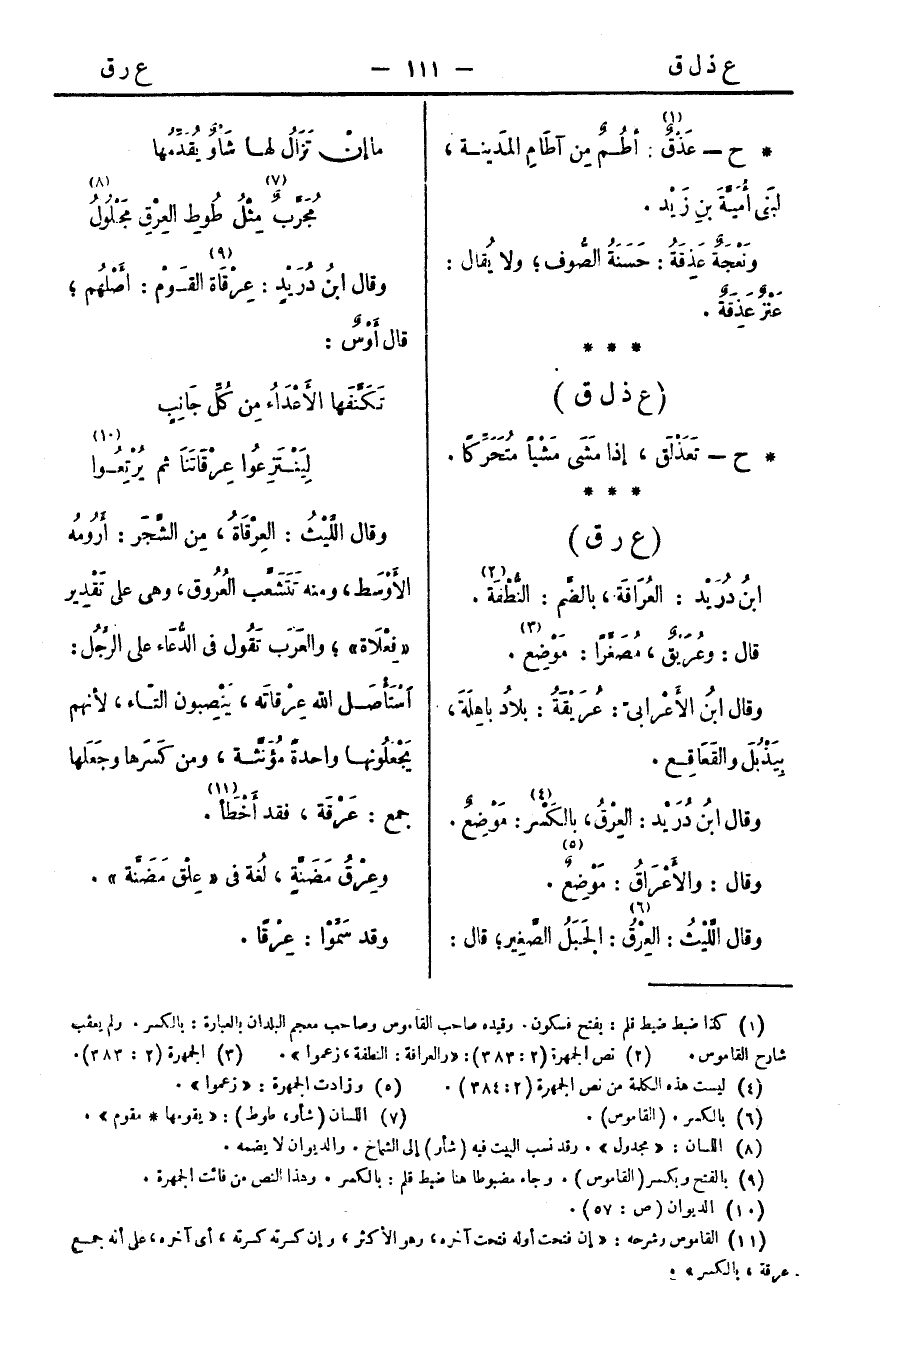 ع ذ ل ق — ١١١ — ع ر ق
(١)
* ح — عَذْقٌ : أُطُمٌ مِن آطَامِ المَدِينَة ،
لبَنَى أُمَيَّةَ بنِ زَيْد .
ونَعْجَةٌ عَذِقَةٌ : حَسَنَةُ الصُّوف ؛ ولا يُقال :
عَنْزٌ عَذِقَةٌ .
* * *
(ع ذ ل ق)
* ح — تَعَذْلَق ، إذا مَشَى مَشْياً مُتَحَرِّكًا .
* * *
(ع ر ق)
(٢)
ابنُ دُرَيْد : العُرَاقَة ، بالضَّم : النُّطْفَة .
(٣)
قال : وعُرَيْقٌ ، مُصَغَّرًا : مَوْضِع .
وقال ابنُ الأَعْرابىّ : عُرَيْقَةُ : بلادُ باهِلَةَ ،
بِيَذْبُلَ والقَعَاقِـع .
(٤)
وقال ابنُ دُرَيْد : العِرْقُ ، بالكَسْر : مَوْضِعٌ .
(٥)
وقال : والأَعْرَاقُ : مَوْضِعٌ .
(٦)
وقال اللَّيْثُ : العِرْقُ : الجَبَلُ الصَّغِير ؛ قال :
ما إنْ تَزَالُ لهَا شَأْوٌ يُقَدِّمُها
(٧) (٨)
مُجَرَّبٌ مِثْلُ طُوطِ العِرْقِ مَجْلُولُ
(٩)
وقال ابنُ دُرَيْدٍ : عِرْقَاةُ القَـوْم : أَصْلُهم ؛
قال أَوْسٌ :
تَكَنَّفَها الأَعْدَاءُ مِن كُلِّ جَانِبٍ
(١٠)
لِيَنْتَزِعُوا عِرْقَاتَنَا ثم يُرْتِعُـوا
وقال اللَّيْثُ : العِرْقَاةُ ، مِن الشَّجَر : أَرُومُه
الأَوْسَط ، ومنه تَتَشَعَّب العُرُوق ، وهى على تَقْدِير
« فِعْلَاة » ؛ والعَرَب تَقُول فى الدُّعَاء على الرَّجُل :
اسْتَأْصَـل الله عِرْقاتَه ، يَنْصِبون التـاء ، لأنهم
يَجْعَلُونهـا واحدةً مُؤَنَّثـة ، ومن كَسَرها وجَعَلها
(١١)
جمع : عَرْقَة ، فقد أَخْطَأ .
وعِرْقُ مَضَنَّةٍ ، لُغة فى « عِلْق مَضَنَّة » .
وقد سَمَّوْا : عِرْقًا .
(١) كذا ضبط ضبط قلم : بفتح فسكون . وقيده صاحب القاموس وصاحب معجم البلدان بالعبارة : بالكسر . ولم يعقب
شارح القاموس . (٢) نص الجمهرة (٢ : ٣٨٣) : « والعراقة : النطفة ، زعموا » . (٣) الجمهرة (٢ : ٣٨٣) .
(٤) ليست هذه الكلمة من نص الجمهرة (٢ : ٣٨٤) . (٥) وزادت الجمهرة : « زعموا » .
(٦) بالكسر . (القاموس) . (٧) اللسان (شأو ، طوط) : « يقومها * مقوم » .
(٨) اللسان : « مجدول » . وقد نسب البيت فيه (شأر) إلى الشماخ . والديوان لا يضمه .
(٩) بالفتح ويكسر (القاموس) . وجاء مضبوطا هنا ضبط قلم : بالكسر . وهذا النص من فائت الجمهرة .
(١٠) الديوان (ص : ٥٧) .
(١١) القاموس وشرحه : « إن فتحت أوله فتحت آخره ، وهو الأكثر ، وإن كسرته كسرته ، أى آخره ، على أنه جمـع
عرقة ، بالكسر » .